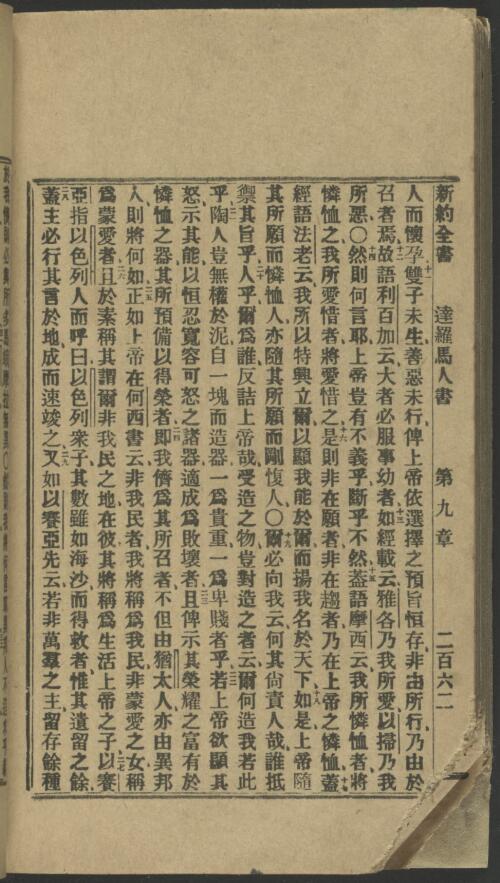 新約全書　達羅馬人書　第九章　二百六二
人而懷孕雙子、十一未生、善惡未行、俾上帝依選擇之預旨恒存、非由所行、乃由於
召者焉、十二故語利百加云、大者必服事幼者、十三如經載云、雅各乃我所愛、以掃乃我
所惡、○十四然則何言耶、上帝豈有不義乎、斷乎不然、十五蓋語摩西云、我所憐恤者、將
憐恤之、我所愛惜者、將愛惜之、十六是則非在願者、非在趨者、乃在上帝之憐恤、十七蓋
經語法老云、我所以特興立爾、以顯我能於爾、而揚我名於天下、十八如是上帝隨
其所願而憐恤人、亦隨其所願而剛愎人、○十九爾必向我云、何其尙責人哉、誰抵
禦其旨乎、二十人乎、爾爲誰、反詰上帝哉、受造之物、豈對造之者云、爾何造我若此
乎、二一陶人豈無權於泥、自一塊而造器、一爲貴重、一爲卑賤者乎、二二若上帝欲顯其
怒、示其能、以恒忍寬容可怒之諸器、適成爲敗壞者、二三且俾示其榮耀之富有於
憐恤之器、其所預備以得榮者、二四卽我儕爲其所召者、不但由猶太人、亦由異邦
人、則將何如、二五正如上帝在何西書云、非我民者、我將稱爲我民、非蒙愛之女、稱
爲蒙愛者、二六且於素稱其謂爾非我民之地、在彼其將稱爲生活上帝之子、二七以賽
亞指以色列人而呼曰、以色列衆子、其數雖如海沙、而得救者、惟其遺留之餘、
二八蓋主必行其言於地、成而速竣之、二九又如以賽亞先云、若非萬羣之主、留存餘種